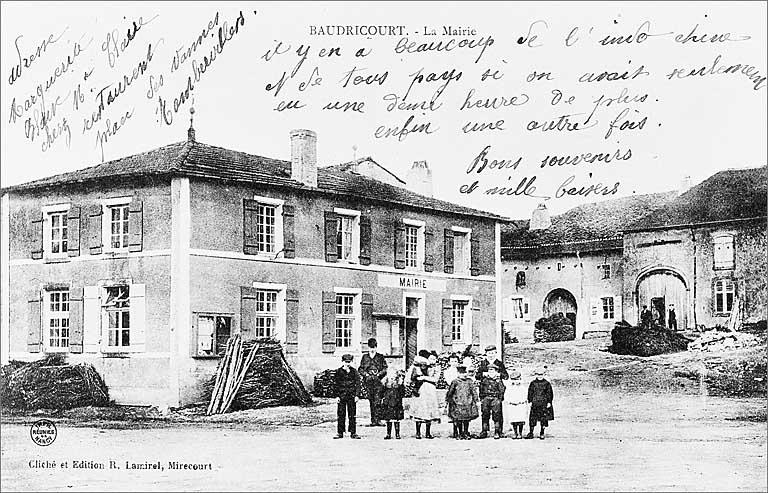 BAUDRICOURT. - La Mairie
adresse
Marguerite
chez Mr Claire
restaurant
place des vannes
Rembervillers
il y en a beaucoup de l'indo chine
et de tous pays si on avait seulement
eu une demie heure de plus.
enfin une autre fois.
Bons souvenirs
et mille baisers.
MAIRIE
IMPR.
RÉUNIES
NANCY
Cliché et Edition R. Lamirel, Mirecourt